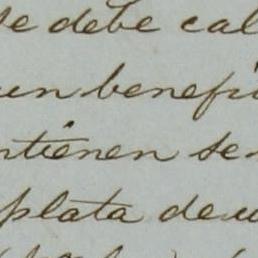 se debe cal
un benefi
ntienen se
plata de